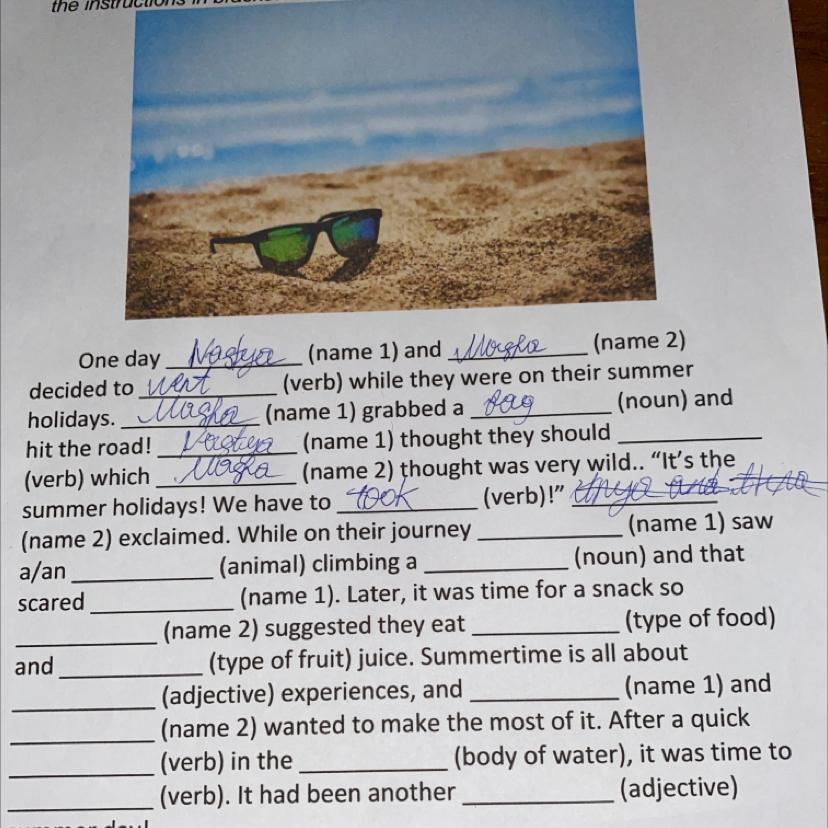 the instructions in
One day Nastya (name 1) and Masha (name 2)
decided to went (verb) while they were on their summer
holidays. Masha (name 1) grabbed a bag (noun) and
hit the road! Nastya (name 1) thought they should ____________
(verb) which Masha (name 2) thought was very wild.. “It’s the
summer holidays! We have to took (verb)!”
(name 2) exclaimed. While on their journey ____________ (name 1) saw
a/an ____________ (animal) climbing a ____________ (noun) and that
scared ____________ (name 1). Later, it was time for a snack so
____________ (name 2) suggested they eat ____________ (type of food)
and ____________ (type of fruit) juice. Summertime is all about
____________ (adjective) experiences, and ____________ (name 1) and
____________ (name 2) wanted to make the most of it. After a quick
____________ (verb) in the ____________ (body of water), it was time to
____________ (verb). It had been another ____________ (adjective)